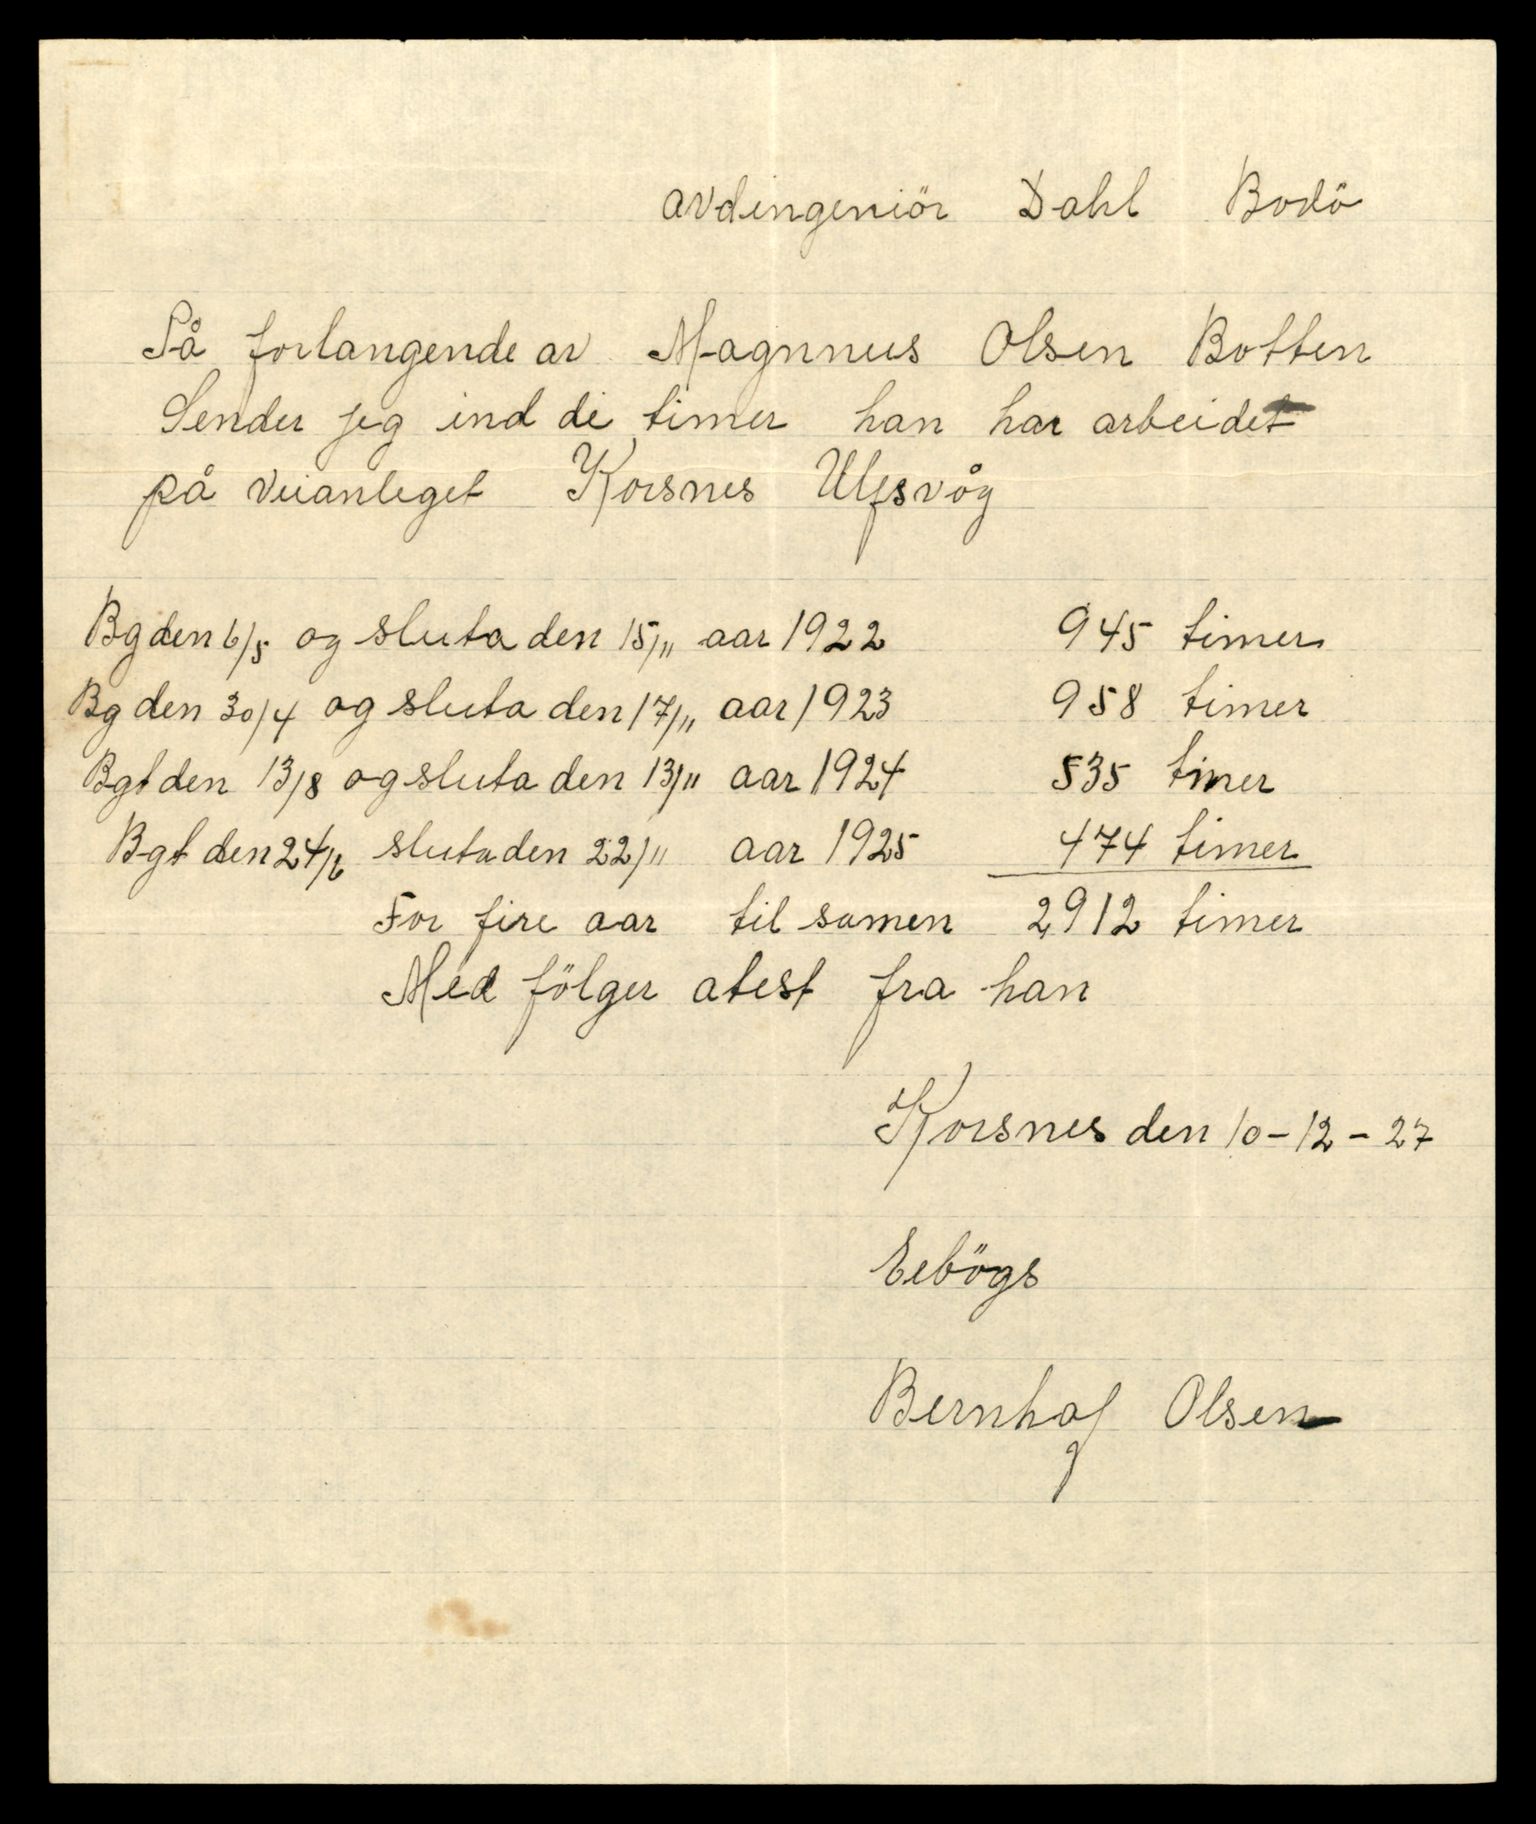 avdingeniör Dahl Bodö
På forlangende av Magnnus Olsen Botten
Sender jeg ind di timer han har arbeidet
på veianleget Korsnes Ulfsvåg
Bg den 6/5 og sluta den 15/11 aar 1922 945 timer
Bg den 30/4 og sluta den 17/11 aar 1923 958 timer
Bgt den 13/8 og sluta den 13/11 aar 1924 535 timer
Bgt den 24/6 sluta den 22/11 aar 1925 474 timer
For fire aar til samen 2912 timer
Med fölger atest fra han
Korsnes den 10-12-27
Eebögs
Bernhof Olsen